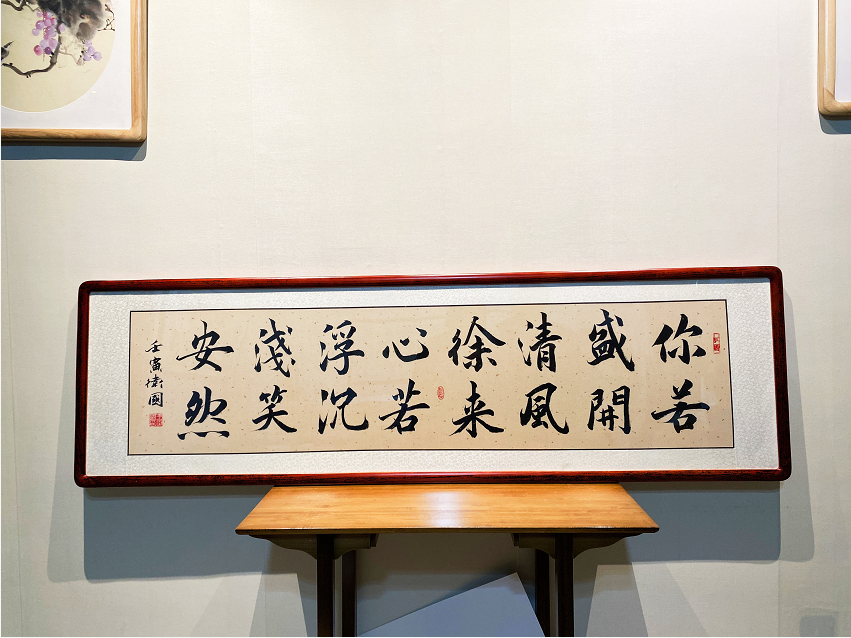 你若
盛開
清風
徐来
心若
浮沉
淺笑
安然
壬寅衛國